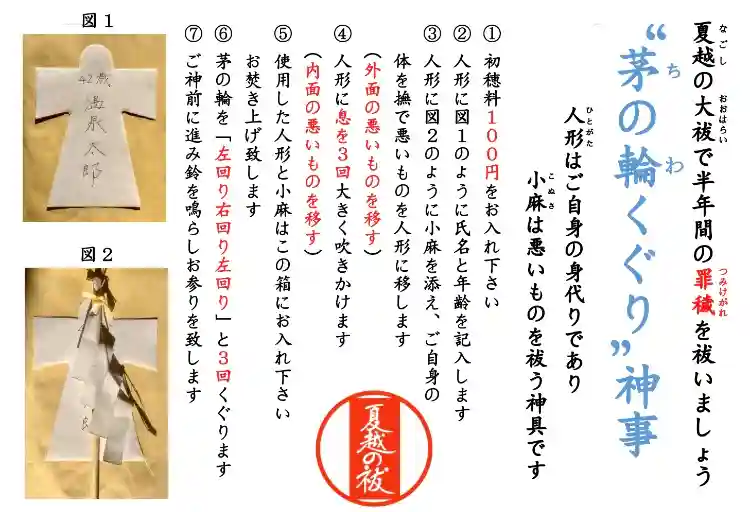 夏越の大祓で半年間の罪穢を祓いましょう
なごし
おおはらい
つみけがれ
“茅の輪くぐり”神事
ち
わ
人形はご自身の身代りであり
ひとがた
小麻は悪いものを祓う神具です
こぬさ
① 初穂料100円をお入れ下さい
② 人形に図1のように氏名と年齢を記入します
③ 人形に図2のように小麻を添え、ご自身の
体を撫で悪いものを人形に移します
(外面の悪いものを移す)
④ 人形に息を3回大きく吹きかけます
(内面の悪いものを移す)
⑤ 使用した人形と小麻はこの箱にお入れ下さい
お焚き上げ致します
⑥ 茅の輪を「左回り右回り左回り」と3回くぐります
⑦ ご神前に進み鈴を鳴らしお参りを致します
夏越の祓
図1
42歳
温泉太郎
図2
郎